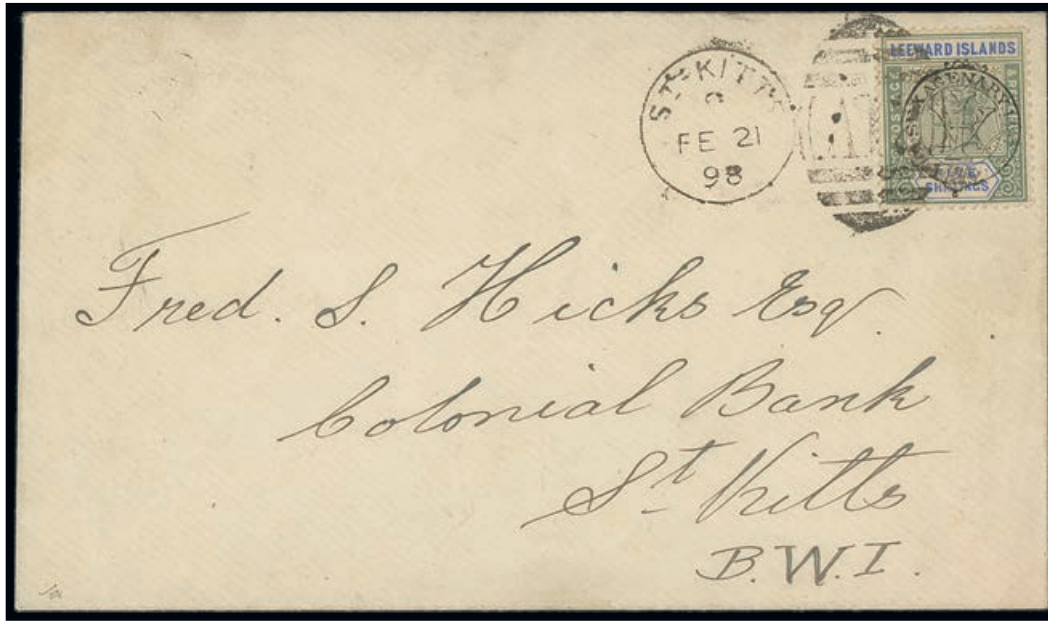 ST. KITTS
C
FE 21
98
LEEWARD ISLANDS
POSTAGE
SEXAGENARY
SHILLINGS
Fred. S. Hicks Esq.
Colonial Bank
St Kitts
B.W.I.